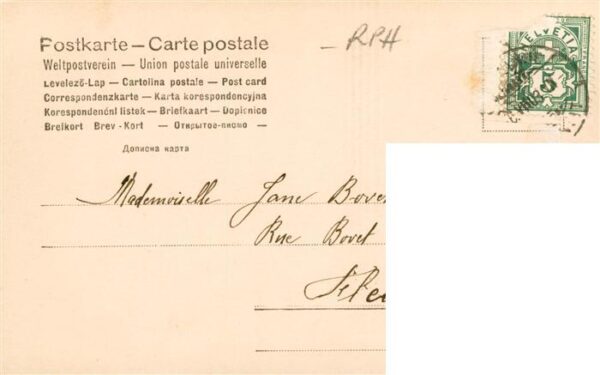 Postkarte — Carte postale
Weltpostverein — Union postale universelle
Levelező-Lap — Cartolina postale — Post card
Correspondenzkarte — Karta korespondencyjna
Korespondenční lístek — Briefkaart — Dopisnice
Brefkort Brev-Kort — Открытое-письмо —
Дописна карта
— RPH
HELVETIA
5
Mademoiselle Jane
Rue Bovet